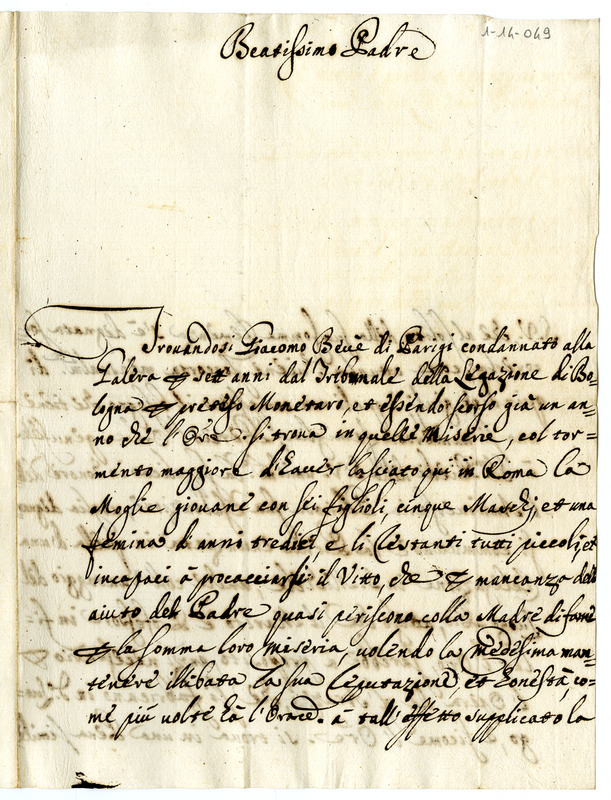 1-14-049
Beatissimo Padre
Trouandosi Giacomo Beuè di Parigi condannato alla
Galera p sett'anni dal Tribunale della Legazione di Bo=
logna p preteso Monetaro, et essendo scorso già un an=
no che l'Ore. si troua in quelle Miserie, col tor=
mento maggiore d'hauer lasciato quì in Roma la
Moglie giouane con sei figlioli, cinque Maschi, et una
femina d'anni tredici, e li Restanti tutti piccoli, et
incapaci à procacciarsi il Vitto, che p mancanza dell
aiuto del Padre quasi periscono colla Madre di fame
p la somma loro miseria, uolendo la medesima man=
tenere illibata la sua Reputazione, et honestà, co=
me più uolte hà l'Orace. à tall'effetto supplicato la